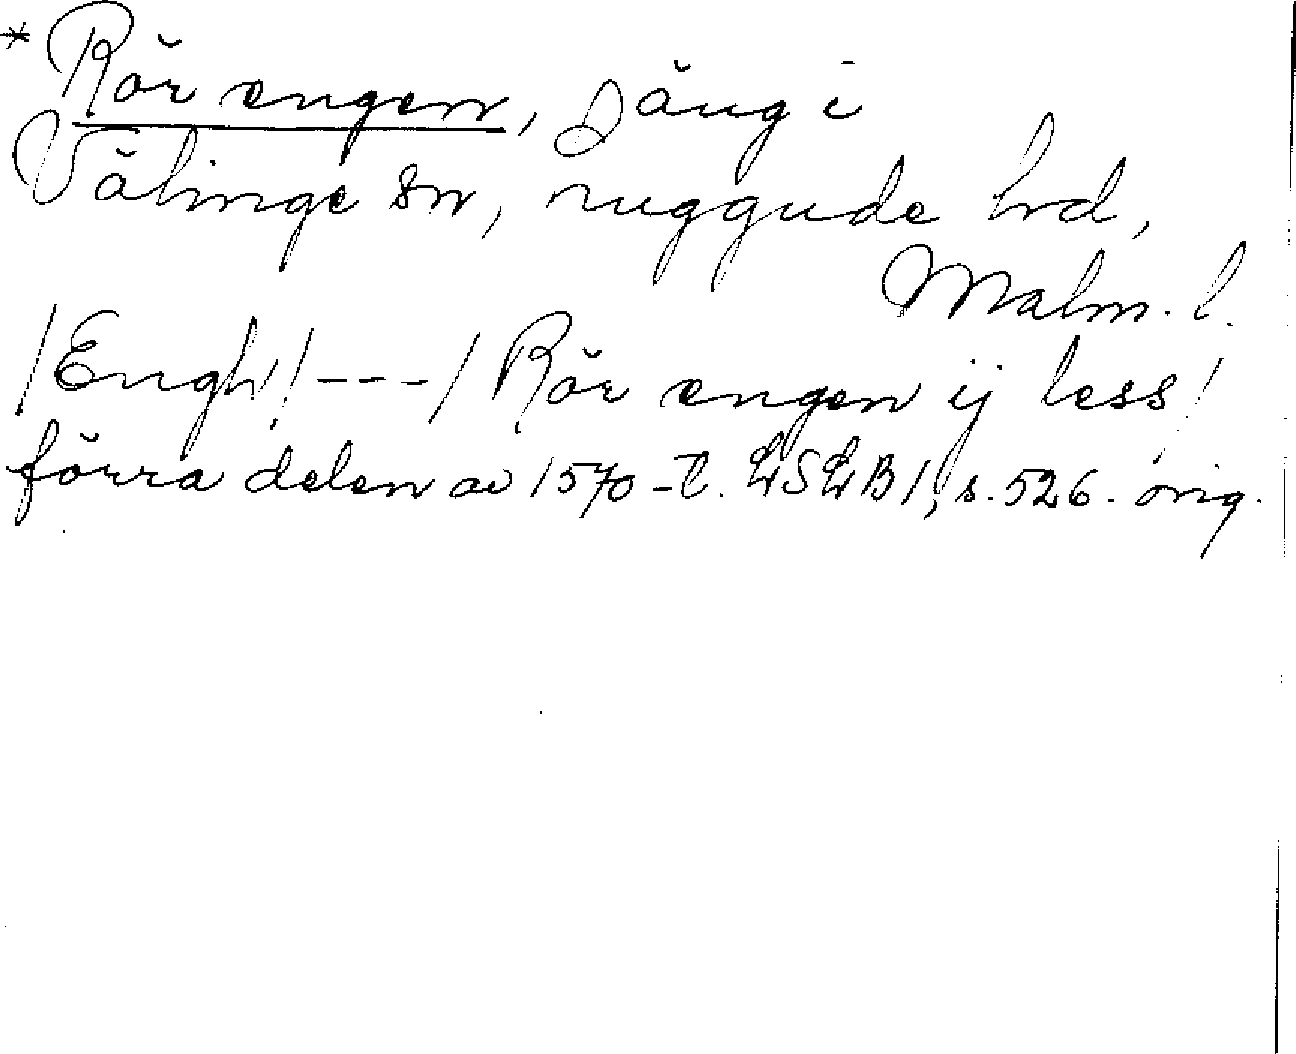 * Rör engen, äng i
Välinge sn, Luggude hd,
Malm. l.
/Engh!/---/ Rör engen ij less!
förra delen av 1570-t. LSLB 1, s. 526. orig.